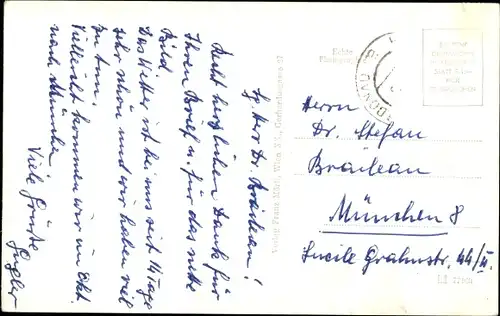 Sg. Herr Dr. Brăilean!
Recht herzlichen Dank für
Ihren Brief u. für das nette
Bild.
Das Wetter ist bei uns seit 14 Tage
sehr schön und wir haben viel
zu tun.
Vielleicht kommen wir im Okt.
nach München.
Viele Grüße
Echte
Photographie
Verlag Franz Mörtl, Wien XI.,
Herrn
Dr. Stefan
Brăilean
München 8
Lucile Grahnstr. 44/II.